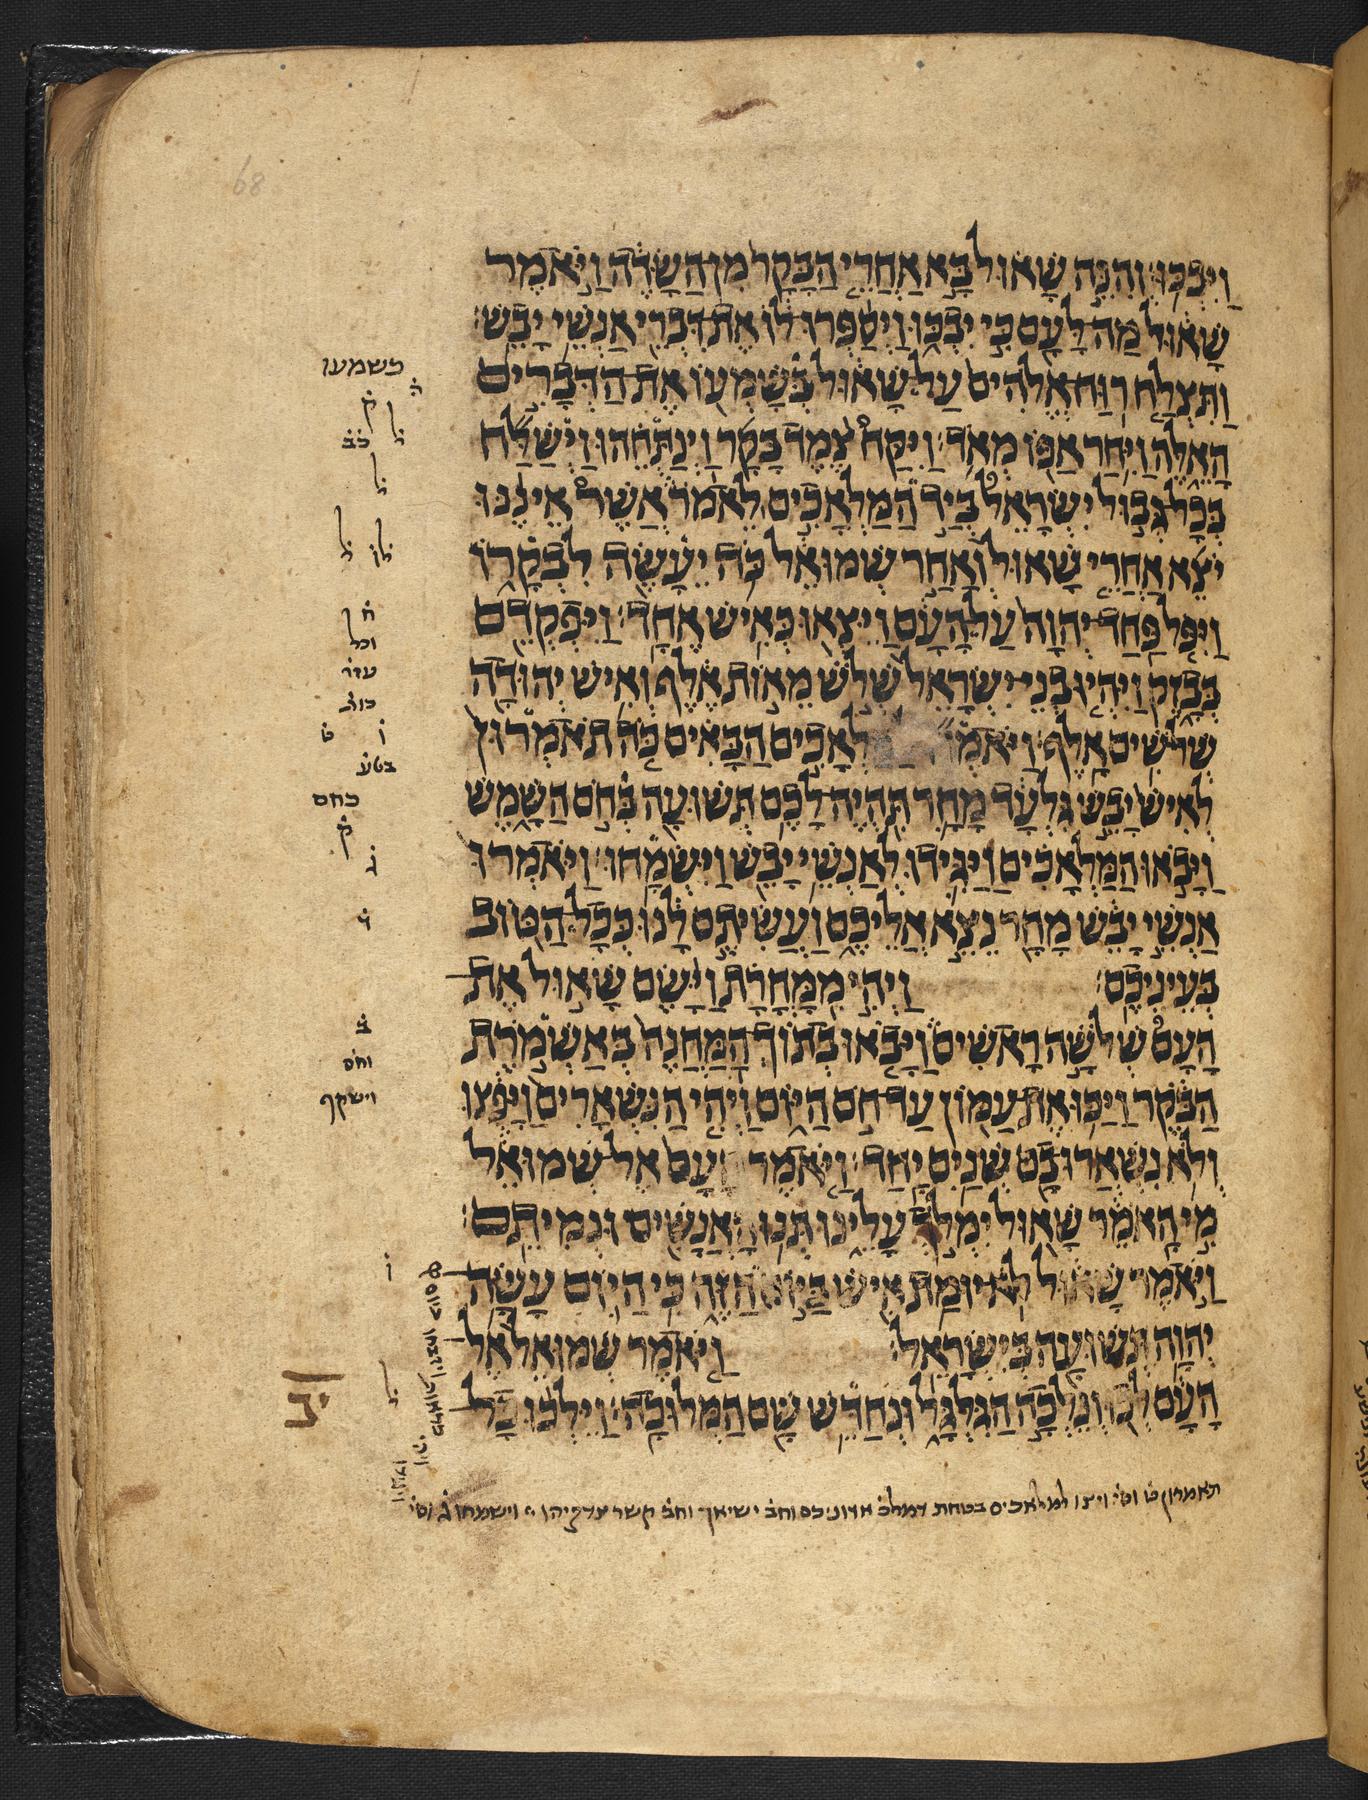 וַיִּבְכּוּ׃ וְהִנֵּה שָׁאוּל בָּא אַחֲרֵי הַבָּקָר מִן הַשָּׂדֶה וַיֹּאמֶר
שָׁאוּל מַה לָּעָם כִּי יִבְכּוּ וַיְסַפְּרוּ לוֹ אֶת דִּבְרֵי אַנְשֵׁי יָבֵשׁ׃
וַתִּצְלַח רוּחַ אֱלֹהִים עַל שָׁאוּל בְּשָׁמְעוֹ אֶת הַדְּבָרִים
הָאֵלֶּה וַיִּחַר אַפּוֹ מְאֹד׃ וַיִּקַּח צֶמֶד בָּקָר וַיְנַתְּחֵהוּ וַיְשַׁלַּח
בְּכָל גְּבוּל יִשְׂרָאֵל בְּיַד הַמַּלְאָכִים לֵאמֹר אֲשֶׁר אֵינֶנּוּ
יֹצֵא אַחֲרֵי שָׁאוּל וְאַחַר שְׁמוּאֵל כֹּה יֵעָשֶׂה לִבְקָרוֹ
וַיִּפֹּל פַּחַד יְהוָה עַל הָעָם וַיֵּצְאוּ כְּאִישׁ אֶחָד׃ וַיִּפְקְדֵם
בְּבָזֶק וַיִּהְיוּ בְנֵי יִשְׂרָאֵל שְׁלֹשׁ מֵאוֹת אֶלֶף וְאִישׁ יְהוּדָה
שְׁלֹשִׁים אָלֶף׃ וַיֹּאמְ לְאָכִים הַבָּאִים כֹּה תֹאמְרוּן
לְאִישׁ יָבֵשׁ גִּלְעָד מָחָר תִּהְיֶה לָכֶם תְּשׁוּעָה בְּחֹם הַשָּׁמֶשׁ
וַיָּבֹאוּ הַמַּלְאָכִים וַיַּגִּידוּ לְאַנְשֵׁי יָבֵשׁ וַיִּשְׂמָחוּ׃ וַיֹּאמְרוּ
אַנְשֵׁי יָבֵשׁ מָחָר נֵצֵא אֲלֵיכֶם וַעֲשִׂיתֶם לָּנוּ כְּכָל הַטּוֹב
בְּעֵינֵיכֶם׃ וַיְהִי מִמָּחֳרָת וַיָּשֶׂם שָׁאוּל אֶת
הָעָם שְׁלֹשָׁה רָאשִׁים וַיָּבֹאוּ בְתוֹךְ הַמַּחֲנֶה בְּאַשְׁמֹרֶת
הַבֹּקֶר וַיַּכּוּ אֶת עַמּוֹן עַד חֹם הַיּוֹם וַיְהִי הַנִּשְׁאָרִים וַיָּפֻצוּ
וְלֹא נִשְׁאֲרוּ בָם שְׁנַיִם יָחַד׃ וַיֹּאמֶר הָעָם אֶל שְׁמוּאֵל
מִי הָאֹמֵר שָׁאוּל יִמְלֹךְ עָלֵינוּ תְּנוּ הָאֲנָשִׁים וּנְמִיתֵם׃
וַיֹּאמֶר שָׁאוּל לֹא יוּמַת אִישׁ בַּיּוֹם הַזֶּה כִּי הַיּוֹם עָשָׂה
יְהוָה תְּשׁוּעָה בְּיִשְׂרָאֵל׃ וַיֹּאמֶר שְׁמוּאֵל אֶל
הָעָם לְכוּ וְנֵלְכָה הַגִּלְגָּל וּנְחַדֵּשׁ שָׁם הַמְּלוּכָה׃ וַיֵּלְכוּ כָל
כשמעו
ה
ק
ל
בב
ל
ל
לו
ח
וכל
עדר
ו
ט
בטע
כחם
ק
ג
ב
וחס
וישקף
ו
ל
יב
תאמרון למלאכים בטחת אדוניכם קשר צדקיהו וישמחו
68